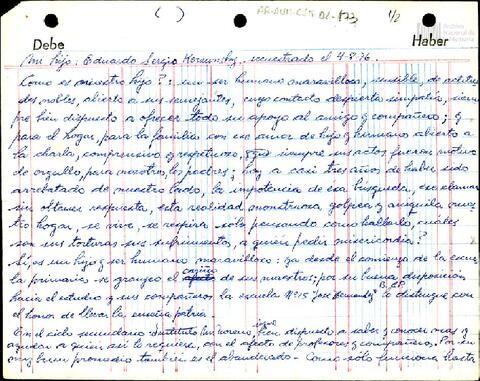 ( )
1/2
Archivo Nacional de la Memoria
Debe Haber
Mi hijo: Eduardo Sergio secuestrado el 4-8-76.
Como es nuestro hijo?: un ser humano maravilloso, sensible, de actitu
des nobles, abierto a sus semejantes, cuyo contacto despierta simpatía, siem
pre bien dispuesto a ofrecer todo su apoyo al amigo y compañero; y
para el hogar, para la familia con ese amor de hijo y hermano abierto a
la charla, comprensivo y respetuoso, siempre sus actos fueron motivo
de orgullo, para nosotros los padres; hoy a casi tres años de haber sido
arrebatado de nuestro lado, la impotencia de esa búsqueda, ese clamar
sin obtener respuesta, esta realidad monstruosa golpea y aniquila nues
tro hogar, se vive, se respira sólo pensando como hallarlo, cuales
son sus torturas sus sufrimientos, a quien pedir misericordia?
Si, es un hijo y ser humano maravilloso: ya desde el comienzo de la escue
la primaria se granjeo el cariño de sus maestros; por su buena disposición
hacia el estudio y sus compañeros la escuela Nº 15 "José
lo distingue con
el honor de llevar la enseña patria.
En el ciclo secundario Instituto bien dispuesto a saber y conocer mas y
ayudar a quien así lo requiere, con el afecto de profesores y compañeros. Por su
muy buen promedio también es el abanderado - Como sólo funciona hasta